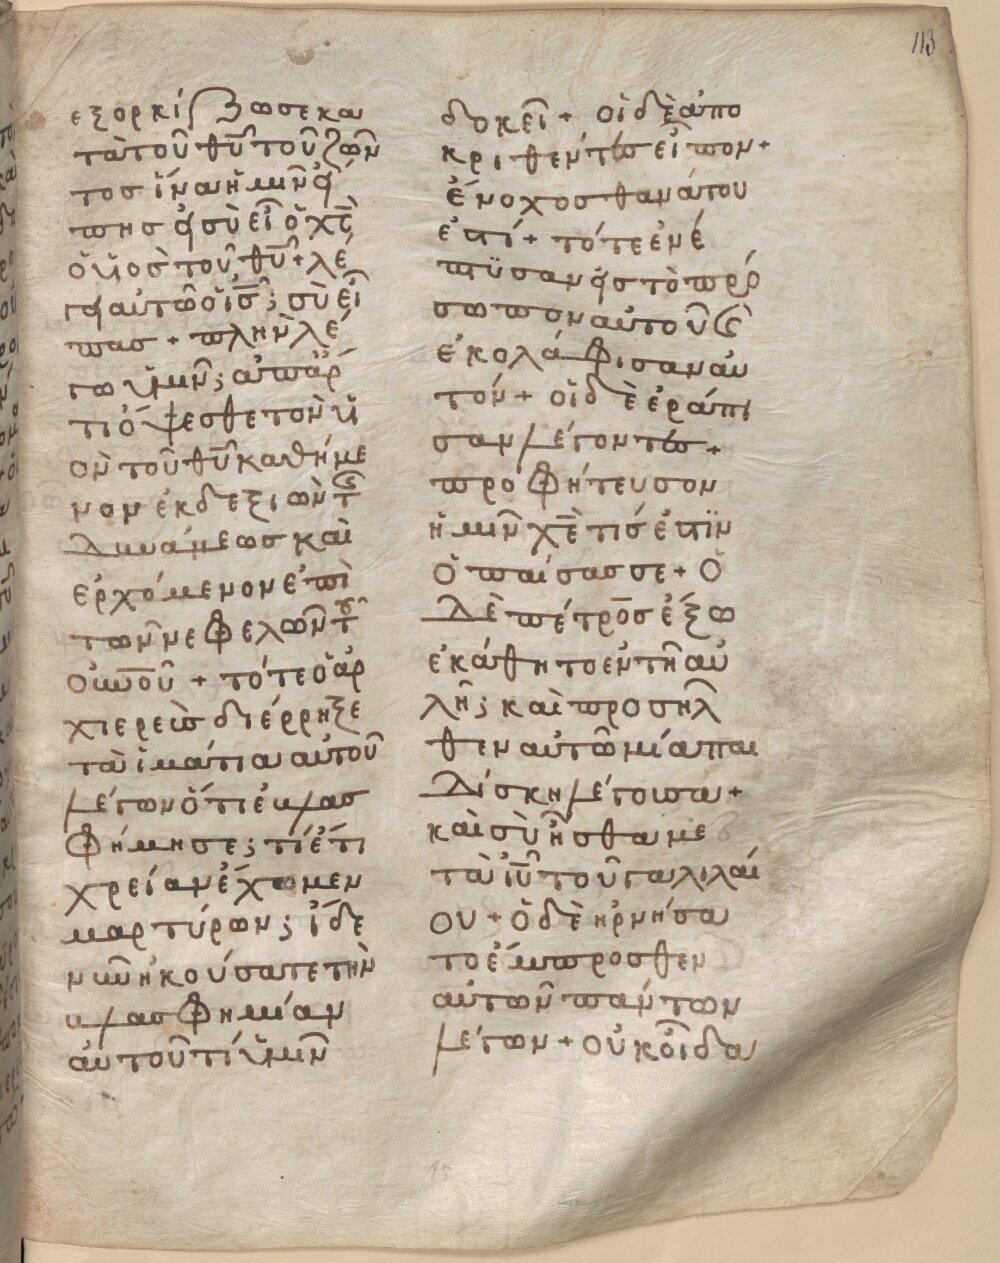 113
εξορκίζωσεκα
τὰτοῦ θῦ τοῦζῶν
τοσ ἵναἡμῖν εἴ
πησ εἰ σὺ εἶ ὁ χσ
ὁ υἱοσ τοῦ θῦ + λέ
γει αὐτῶ ὁ ισ; σὺ εἶ
πασ + πλὴν λέ
γω ὑμῖν; ἀπάρ
τι ὄψεσθε τὸν υἱ
ὸν τοῦ θῦ καθήμε
νον ἐκδεξιῶν τ
δυνάμεωσ καὶ
ἐρχόμενον ἐπὶ
τῶν νεφελῶν τ
οὐνοῦ + τότε ὁ ἀρ
χιερεὺσ διέρρηξε
τὰ ἱμάτια αὐτοῦ
λέγων ὅτι ἐβλασ
φήμησε; τί ἔτι
χρείαν ἔχομεν
μαρτύρων; ἴδε
νῦν ἠκούσατε τὴν
βλασφημίαν
αὐτοῦ τί ὑμῖν
δοκεῖ + οἱ δὲ ἀπο
κριθέντεσ εἶπον +
ἔνοχοσ θανάτου
ἐστί + τότε ἐνέ
πτϋσαν εἰσ τὸ πρό
σωπον αὐτοῦ κὶ
ἐκολάφισαν αὐ
τόν + οἱ δὲ ἐράπι
σαν λέγοντεσ +
προφήτευσον
ἡμῖν χὲ τίσ ἐστϊν
ὁ παίσασ σε + Ὁ
δὲ πέτροσ ἔξω
ἐκάθητο ἐν τῆ αὐ
λῆ; καὶ προσῆλ
θεν αὐτῶ μία παι
δίσκη λέγουσα +
καὶ σὺ ἦσθα με
τὰ ιῦ τοῦ γαλιλαί
ου + ὁ δὲ ἠρνήσα
το ἔμπροσθεν
αὐτῶν πάντων
λέγων + οὐκ οἶδα